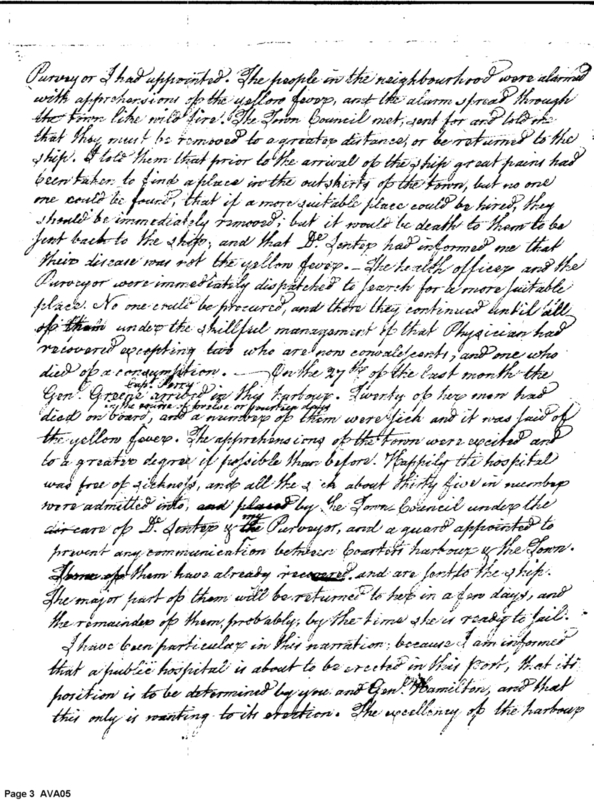 Purveyor I had appointed. The people in the neighbourhood were alarmed
with apprehensions of the yellow fever, and the alarm spread through
the town like wild fire. The Town Council met, sent for and told me
that they must be removed to a greater distance, or be returned to the
ship. I told them that prior to the arrival of the ship great pains had
been taken to find a place in the outskirts of the town, but no one
one could be found; that if a more suitable place could be hired, they
should be immediately removed; but it would be death to them to be
sent back to the ship; and that Dr. Senter had informed me that
their disease was not the yellow fever. — The health officer and the
Purveyor were immediately dispatched to search for a more suitable
place. No one could be procured, and there they continued until all
of them under the skillful management of that Physician had
recovered excepting two who are now convalescents; and one who
died of a consumption. — On the 27th of the last month the
Capt. Perry
Genl. Greene arrived in this harbour. Twenty of her men had
in the course of twelve or fourteen days
died on board, and a number of them were sick and it was said of
the yellow fever. The apprehensions of the town were excited and
to a greater degree if possible than before. Happily the hospital
was free of sickness, and all the sick about thirty five in number
were admitted into, and placed by the Town Council under the
my
air care of Dr. Senter & the Purveyor, and a guard appointed to
prevent any communication between Coasters harbour & the Town.
Some of them have already recovered and are sent to the ship.
The major part of them will be returned to her in a few days, and
the remainder of them, probably, by the time she is ready to sail.
I have been particular in this narration; because I am informed
that a public hospital is about to be erected in this Port, that its
position is to be determined by you and Genl. Hamilton, and that
this only is wanting to its erection. The excellency of the harbour
Page 3 AVA05